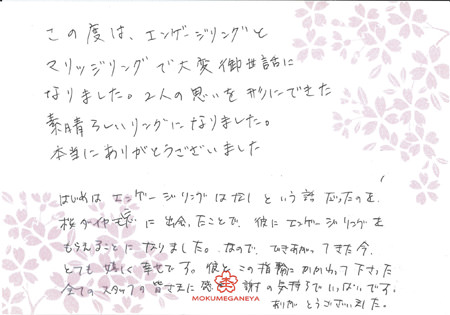 この度は、エンゲージリングと
マリッジリングで大変御世話に
なりました。2人の思いを形にできた
素晴らしいリングになりました。
本当にありがとうございました
はじめは エンゲージリングはなし という話 だったのを、
桜ダイヤ に 出会ったことで、彼に エンゲージリングを
もらえることに なりました。なので、できあがってきた今、
とても 嬉しく 幸せです。彼と この指輪に かかわって下さった
全ての スタッフの 皆さまに 感謝の気持ちで いっぱいです。
ありがとうございました。
MOKUMEGANEYA